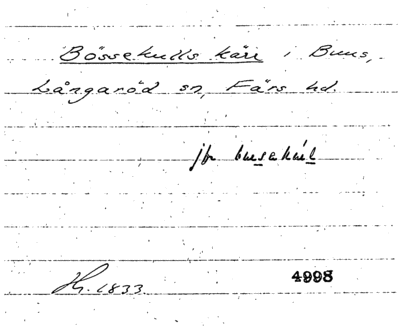 Bössekulls kärr i Buus,
Långaröd sn, Färs hd.
jfr busekúl
H. 1833
4998